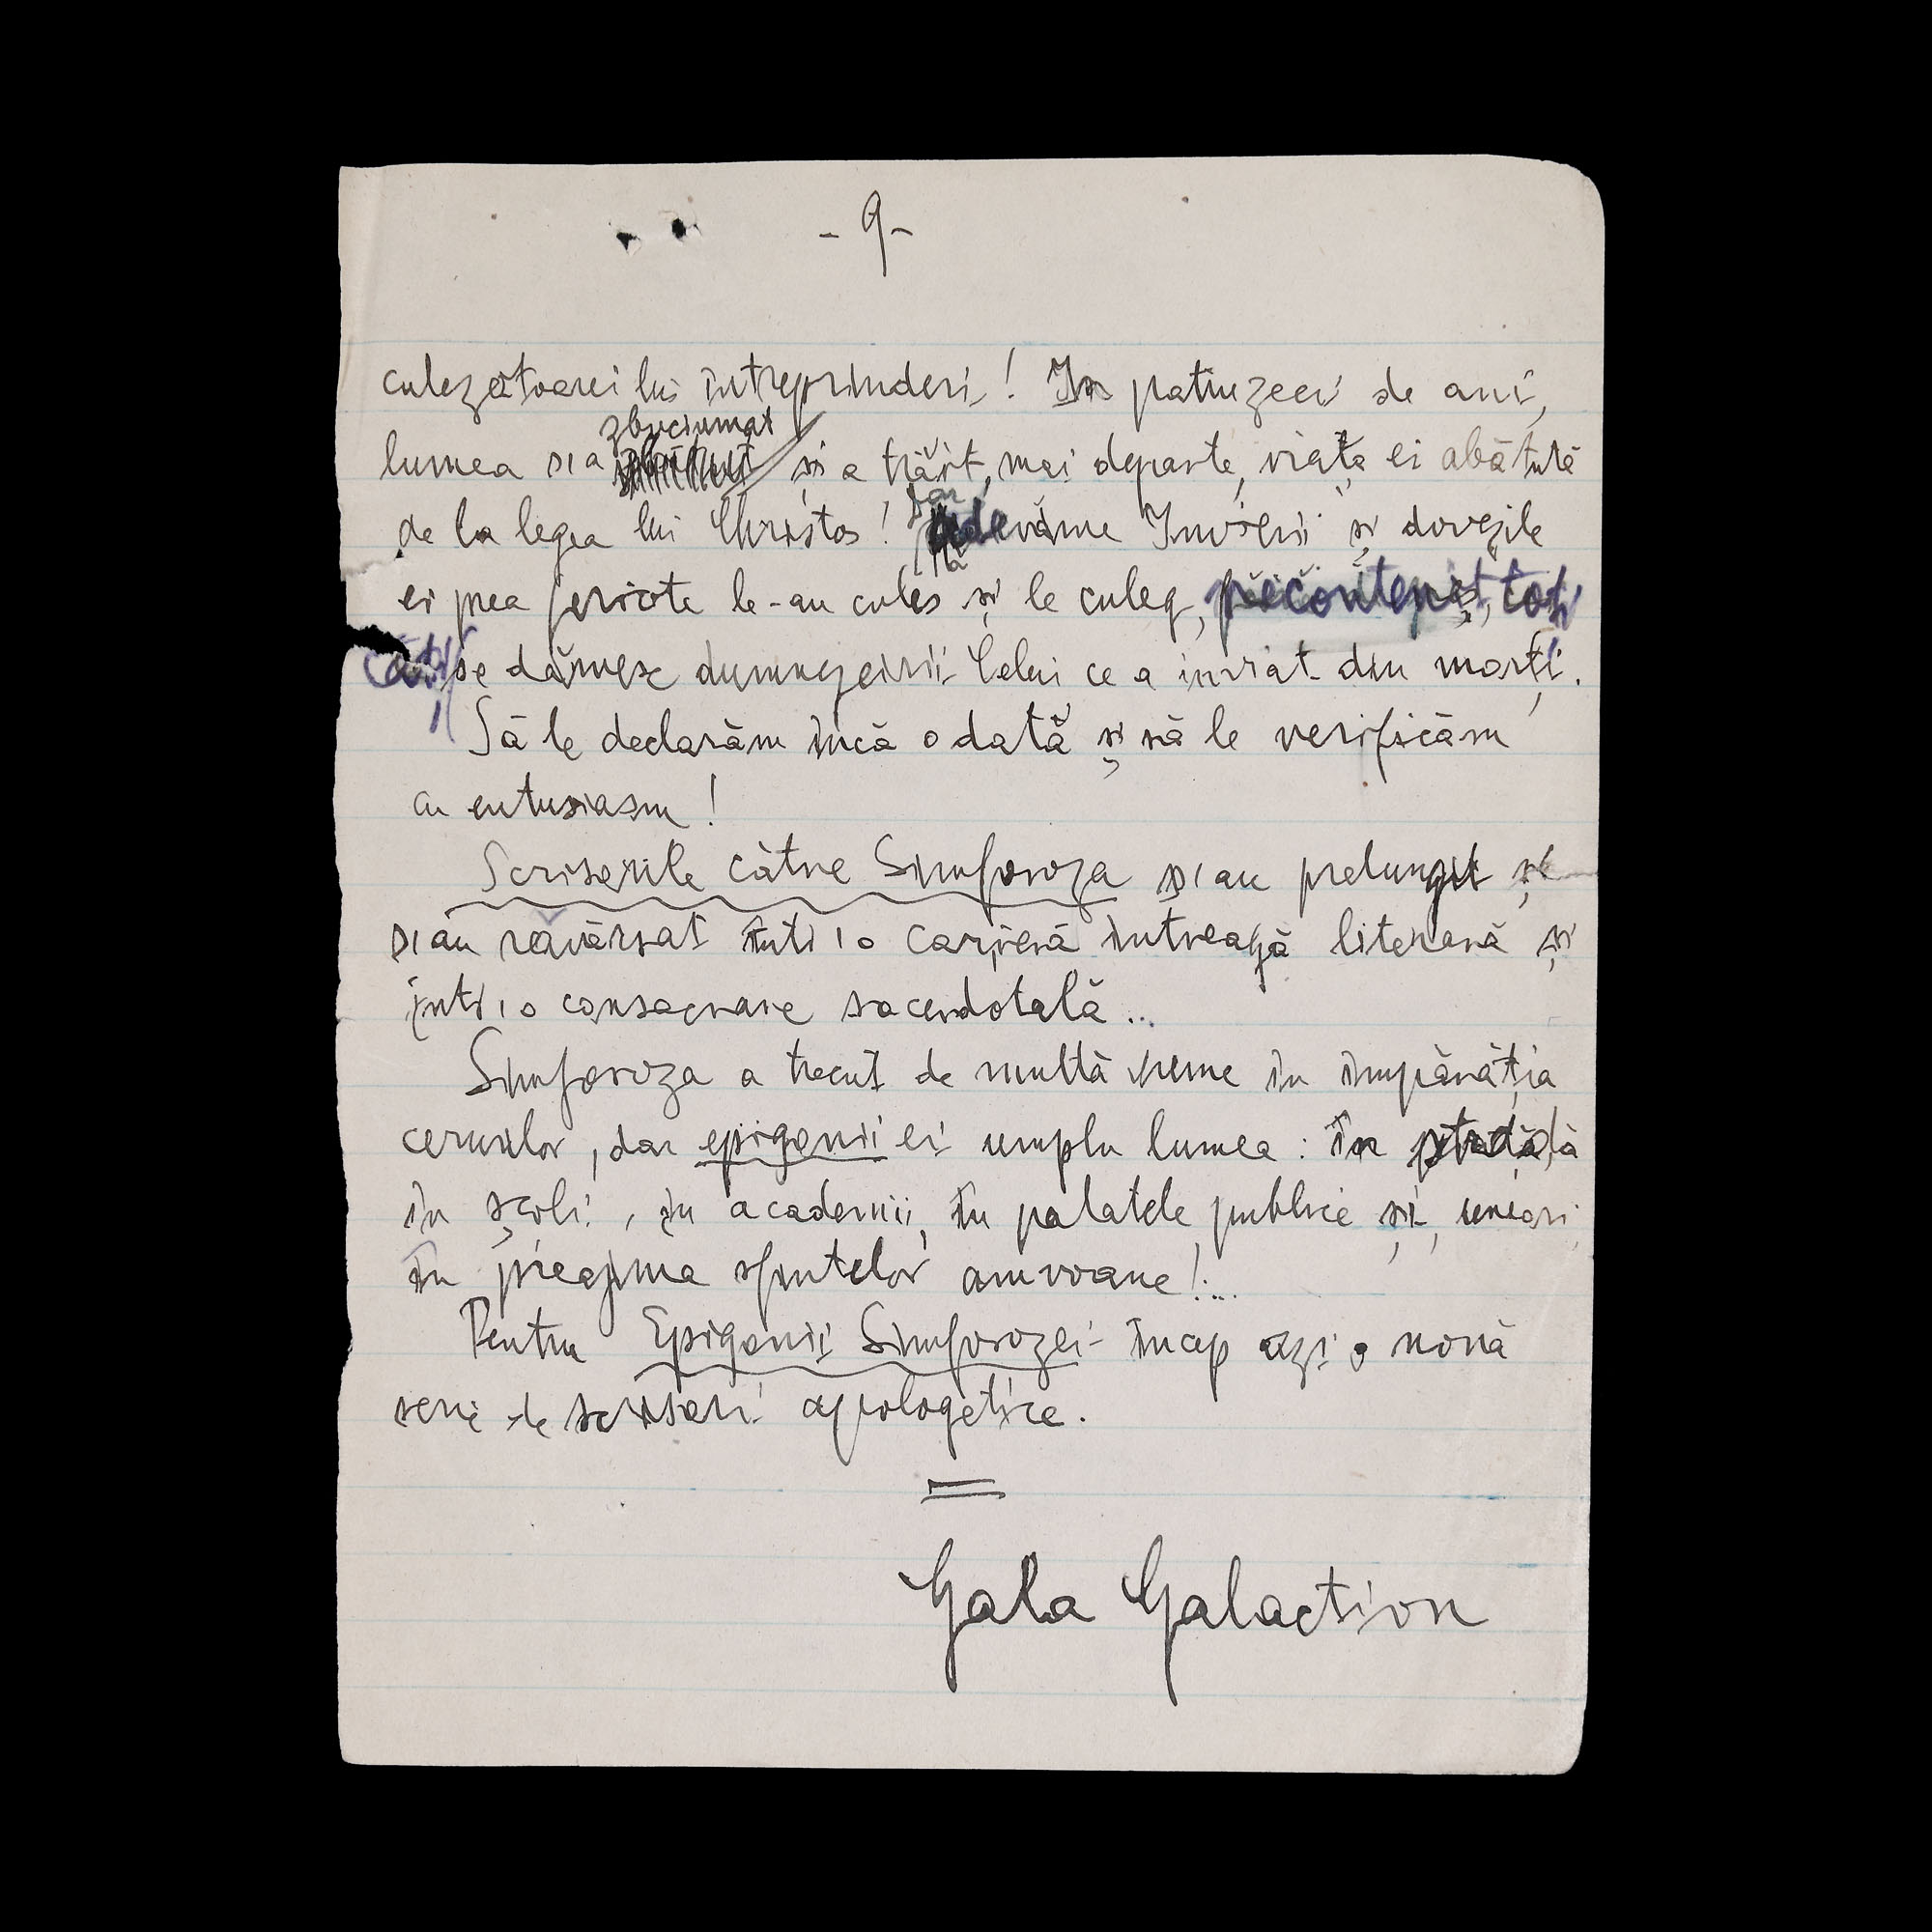 - 9 -
cutezătoarei lui întreprinderi! In patruzeci de ani,
zbuciumat
lumea s'a și a trăit, mai departe, viața ei abătută
Dar
de la legea lui Christos! adevărul Invierii și dovezile
ei prea fericite le-au cules și le culeg, necontenit, toți
câți se dăruesc dumnezeirii Celui ce a inviat din morți.
Să le declarăm încă odată și să le verificăm
cu entusiasm!
Scrisorile către Simforoza s'au prelungit și
s'au revărsat într'o carieră întreagă literară și
într'o consacrare sacerdotală...
Simforoza a trecut de multă vreme în împărăția
cerurilor, dar epigonii ei umplu lumea: în stradă,
în școli, în academii, în palatele publice și, uneori,
în preajma sfintelor amvoane!...
Pentru Epigonii Simforozei încep azi o nouă
serie de scrisori apologetice.
Gala Galaction